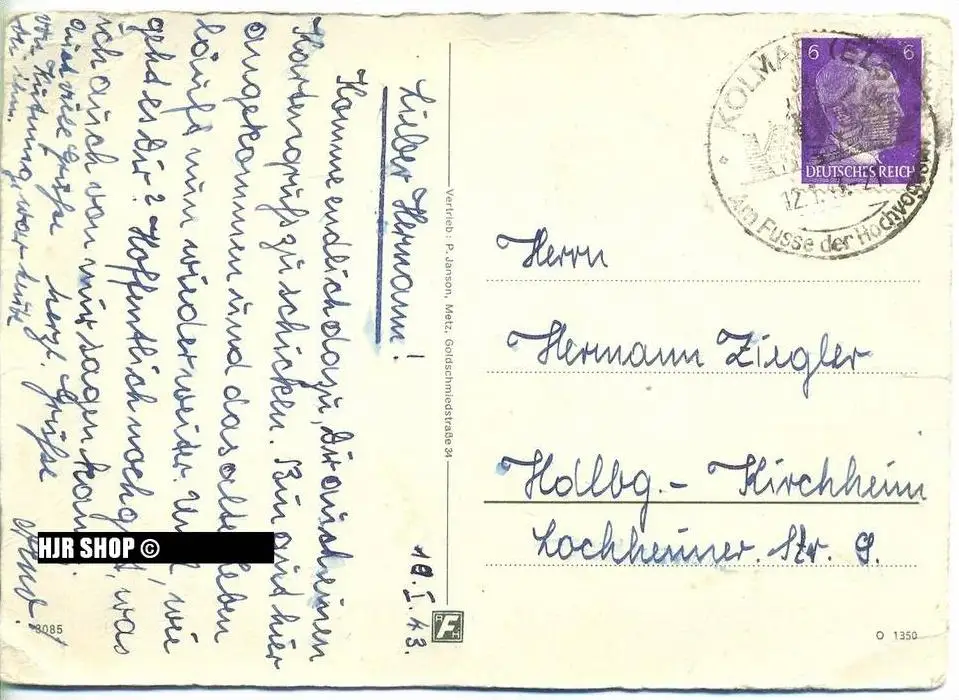 Lieber Hermann!
Komme endlich dazu, Dir auch einen
Kartengruß zu schicken. Bin gut hier
angekommen und das alte Leben
läuft nun wieder weiter. Und, wie
geht es Dir? Hoffentlich noch gut, was
ich auch von mir sagen kann.
Sind viele Grüße herzl. Grüße
von
zu ihm
10.I.43.
Vertrieb: P. Janson, Metz, Goldschmiedstraße 34
8085
HJR SHOP ©
6 6
DEUTSCHES REICH
KOLMAR (ELS
12.1.
Am Fusse der Hochvogesen
Herrn
Hermann Ziegler
Hdlbg.- Kirchheim
Lochheimer Str. 9.
O 1350